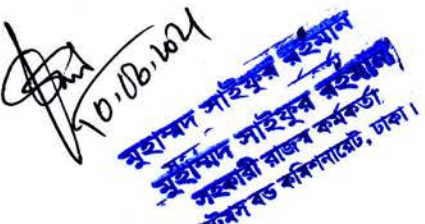 10.06.2021
মুহাম্মদ সাইফুর রহমান
মুহাম্মদ সাইফুর রহমান
সহকারী রাজস্ব কর্মকর্তা
বন্ড কমিশনারেট, ঢাকা।